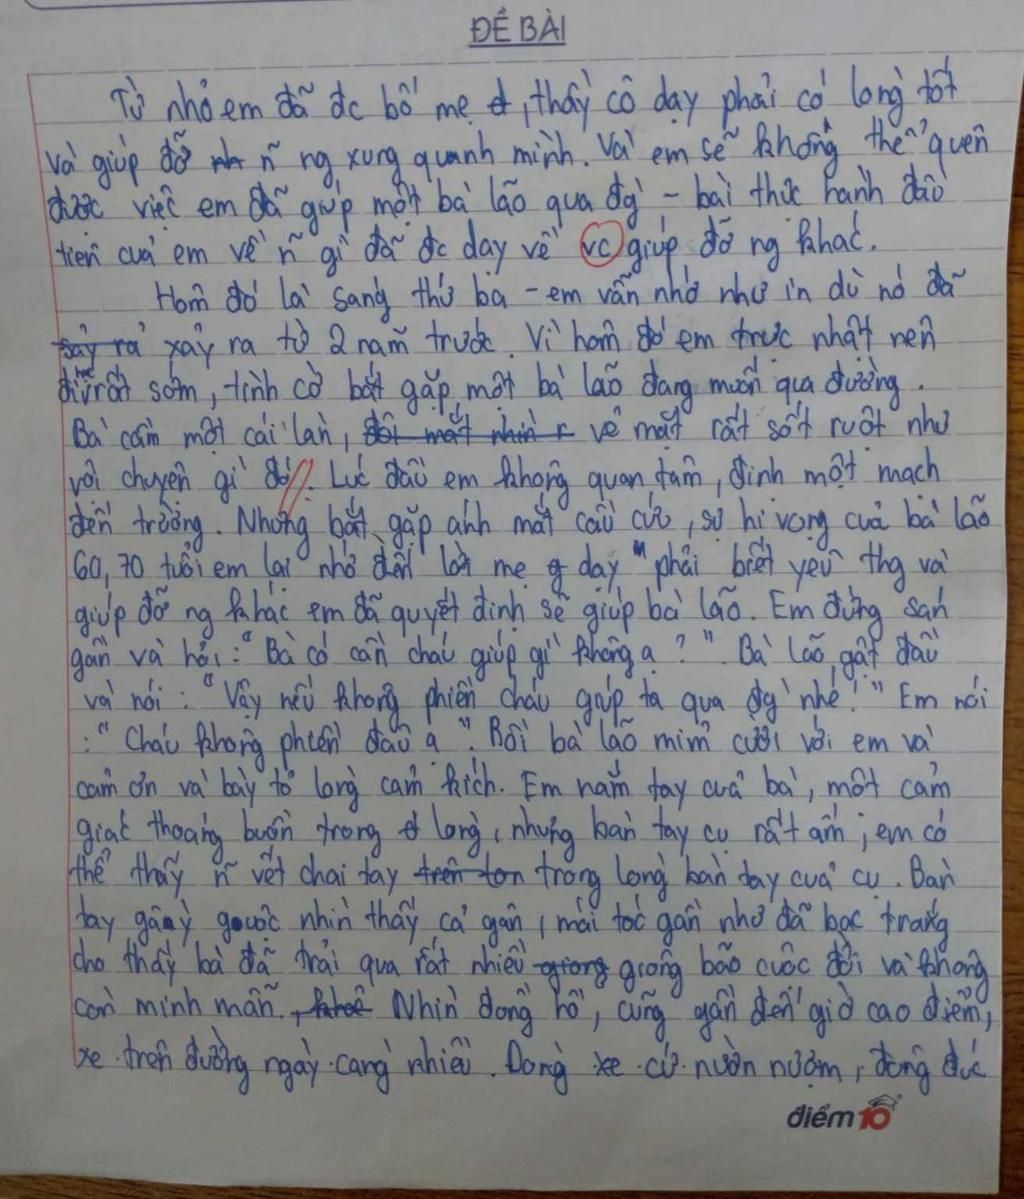 ĐỀ BÀI
Từ nhỏ em đã đc bố mẹ, thầy cô dạy phải có lòng tốt
và giúp đỡ ñ ng xung quanh mình. Và em sẽ không thể quên
được việc em đã giúp một bà lão qua đg - bài thực hành đầu
tiên của em về ñ gì đã đc dạy về vc giúp đỡ ng khác.
Hôm đó là sáng thứ ba - em vẫn nhớ như in dù nó đã
xảy ra từ 2 năm trước. Vì hôm đó em trực nhật nên
đi rất sớm, tình cờ bắt gặp một bà lão đang muốn qua đường.
Bà cầm một cái làn, vẻ mặt rất sốt ruột như
vội chuyện gì đó. Lúc đầu em không quan tâm, định một mạch
đến trường. Nhưng bắt gặp ánh mắt cầu cứu, sự hi vọng của bà lão
60, 70 tuổi em lại nhớ đến lời mẹ dạy " phải biết yêu thg và
giúp đỡ ng khác em đã quyết định sẽ giúp bà lão. Em đứng sán
gần và hỏi: "Bà có cần cháu giúp gì không ạ?". Bà lão gật đầu
và nói: "Vậy nếu không phiền cháu giúp ta qua đg nhé!" Em nói
: "Cháu không phiền đâu ạ". Rồi bà lão mỉm cười với em và
cảm ơn và bày tỏ lòng cảm kích. Em nắm tay của bà, một cảm
giác thoáng buồn trong lòng, nhưng bàn tay cụ rất ấm, em có
thể thấy ñ vết chai tay trong lòng bàn tay của cụ. Bàn
tay gầy guộc nhìn thấy cả gân, mái tóc gần như đã bạc trắng
cho thấy bà đã trải qua rất nhiều giong bão cuộc đời và không
còn minh mẫn. Nhìn đồng hồ, cũng gần đến giờ cao điểm,
xe trên đường ngày càng nhiều. Dòng xe cứ nườn nượm, đông đúc
điểm 10